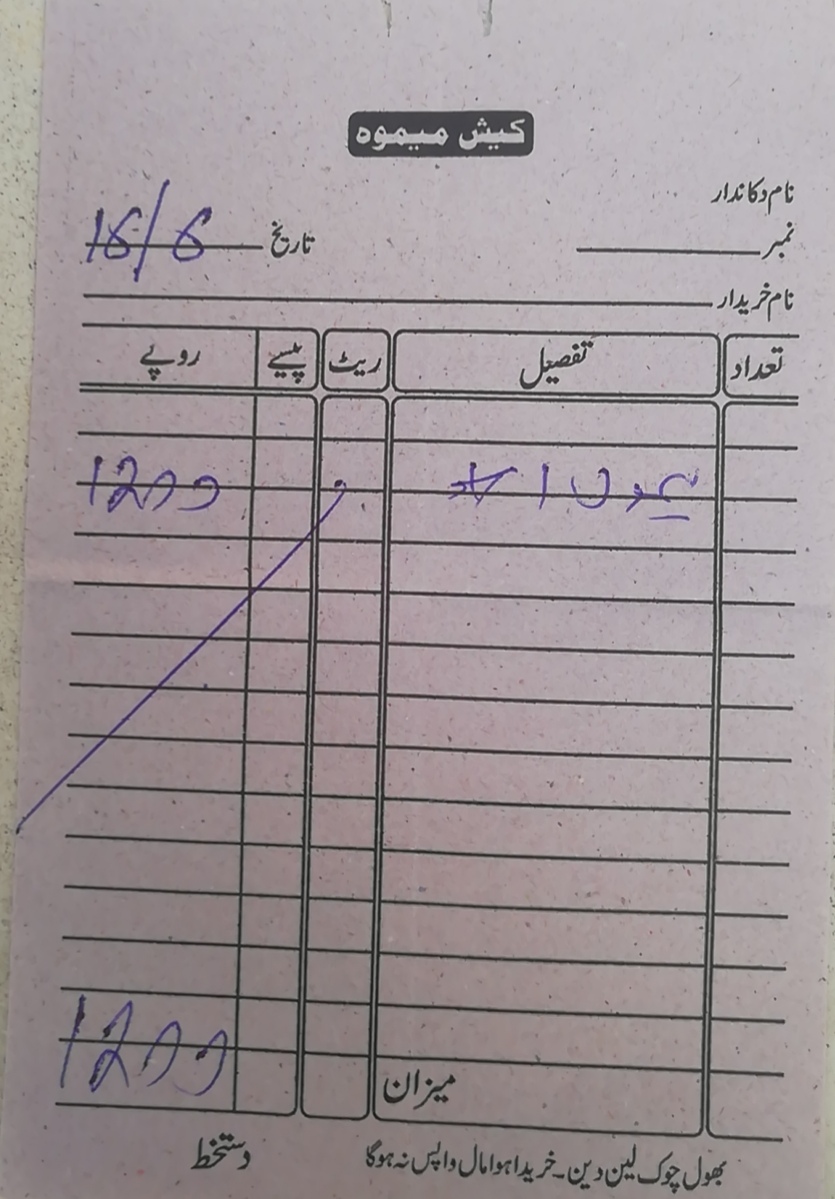 کیش میموہ
نام دکاندار
نمبر تاریخ 16/6
نام خریدار
تعداد تفصیل ریٹ پیسے روپے
1200
میزان 1200
بھول چوک لین دین۔ خریدا ہوا مال واپس نہ ہوگا دستخط